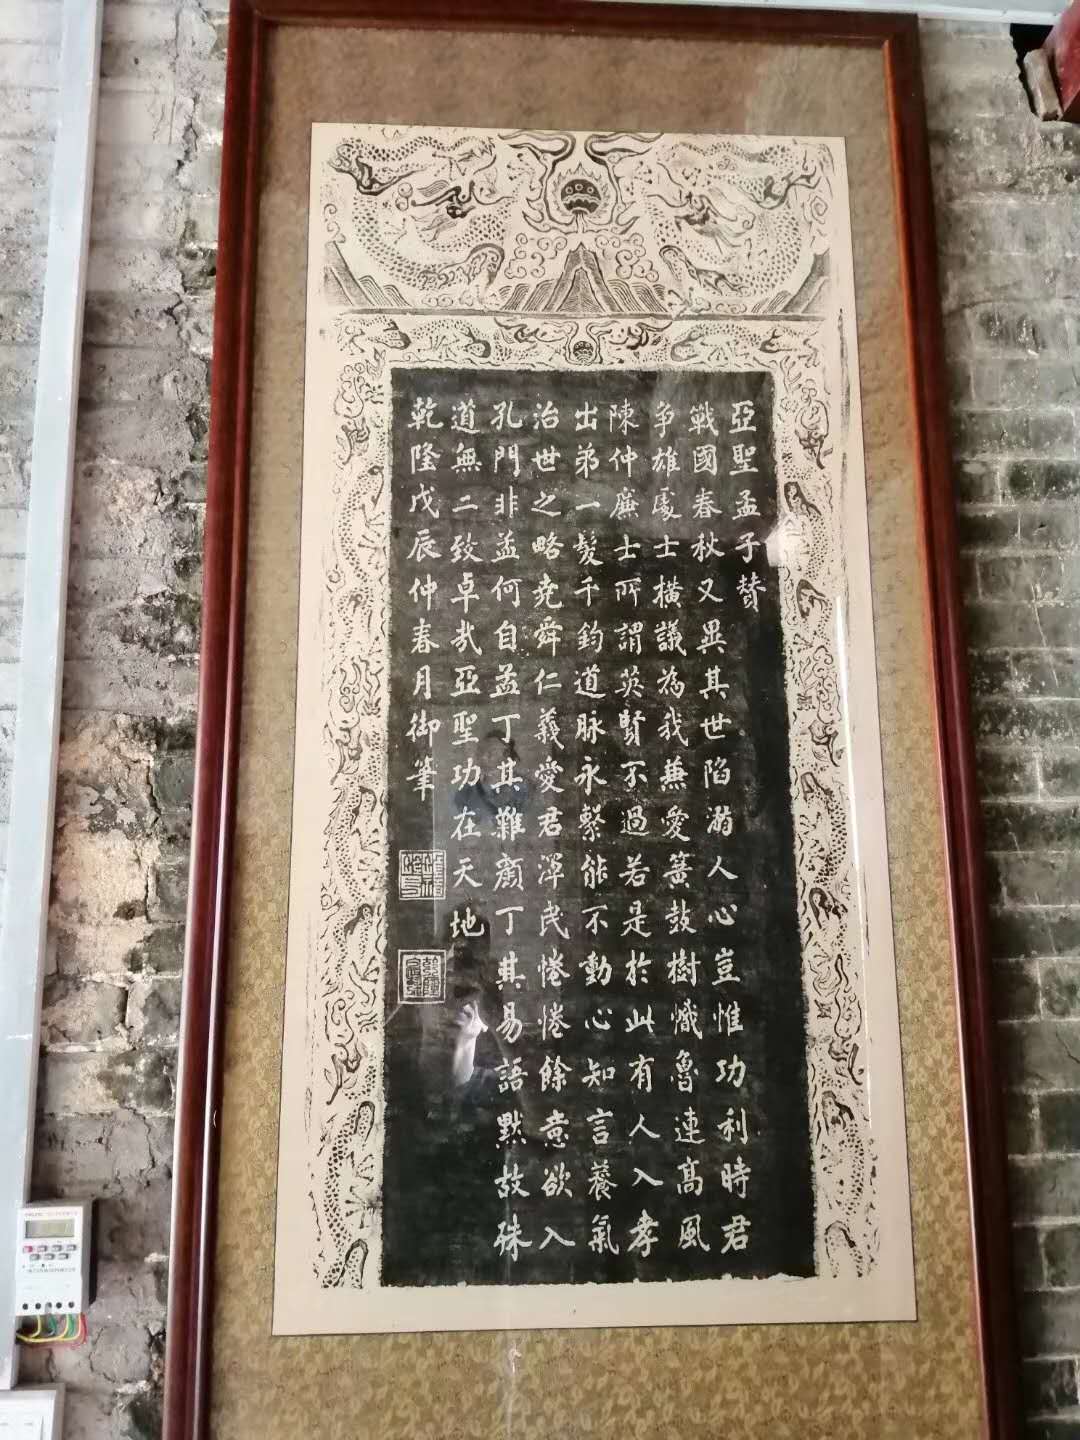 亞聖孟子贊
戰國春秋又異其世陷溺人心豈惟功利時君
爭雄處士橫議為我兼愛簧鼓樹幟魯連高風
陳仲廉士所謂英賢不過若是於此有人入孝
出弟一髮千鈞道脉永繫能不動心知言養氣
治世之略堯舜仁義愛君澤民惓惓餘意欲入
孔門非孟何自孟丁其難顏丁其易語默故殊
道無二致卓哉亞聖功在天地
乾隆戊辰仲春月御筆